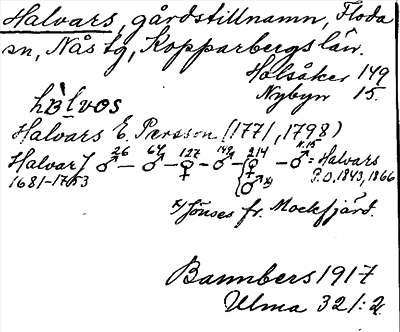 Halvars, gårdstillnamn, Floda
sn, Nås tg, Kopparbergs län.
Holsåker 149
Nybyn 15.
hàlvos
Halvars E. Persson (1771, 1798)
Halvar/ ♂ 26 – ♂ 64 – ♀ 127 – ♂ 149 – ♀ 214 – ♂ N.15 = Halvars
1681–1753 {♂ x) P.O. 1843, 1866
x) Jönses fr. Mockfjärd.
Bannbers 1917
Ulma 321:2.